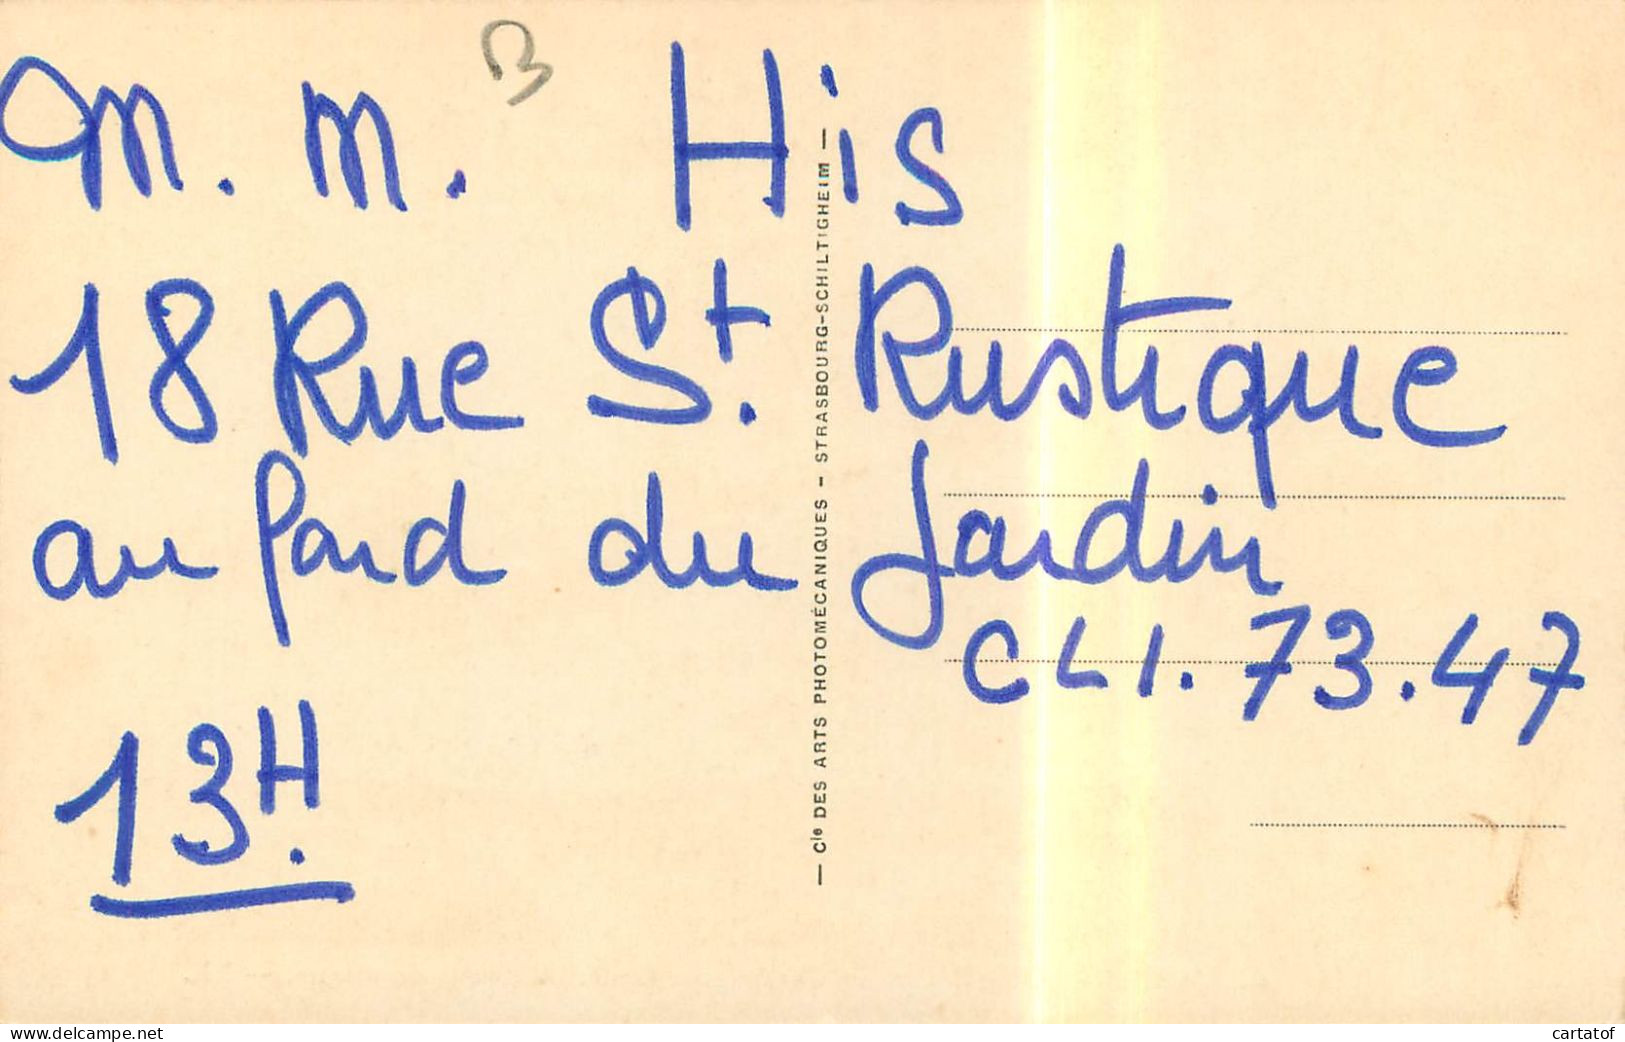 B
M. M. His
18 Rue St. Rustique
au fond du Jardin
CLI. 73.47
13H.
— Cie DES ARTS PHOTOMÉCANIQUES - STRASBOURG-SCHILTIGHEIM —
www.delcampe.net
cartatof